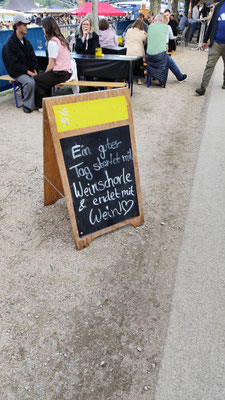 Ein guter
Tag startet mit
Weinschorle
& endet mit
Wein!♡